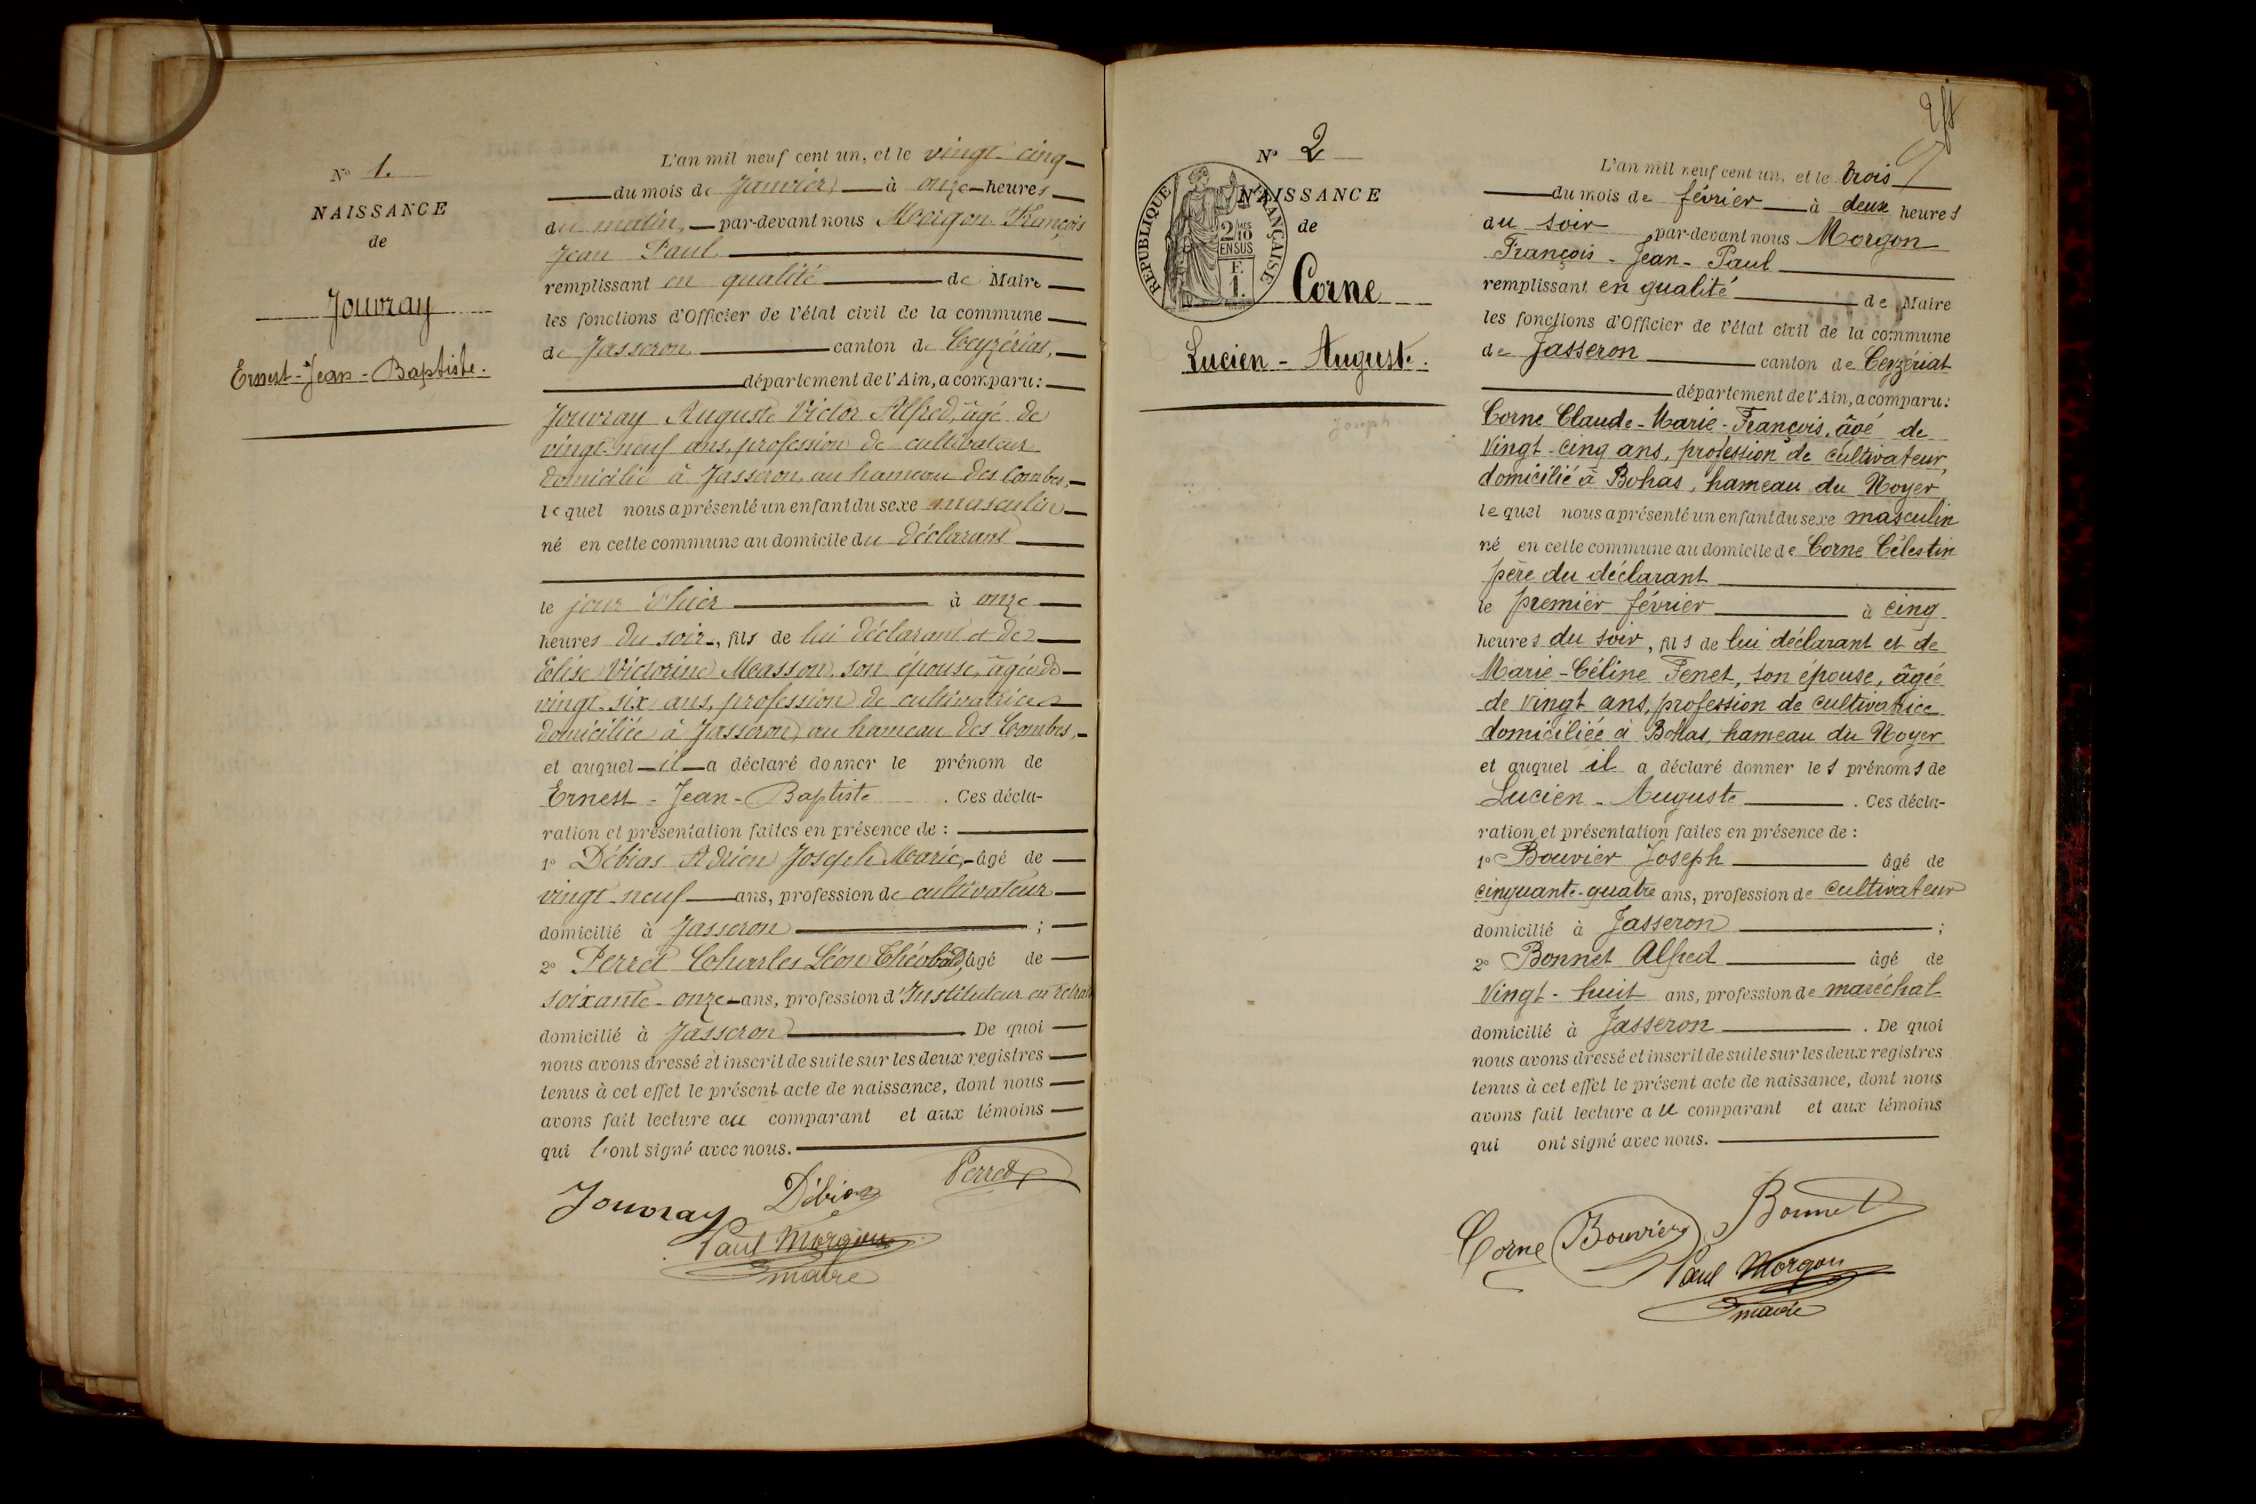 N° 1.
NAISSANCE
de
Jouvray
Ernest-Jean-Baptiste.
L'an mil neuf cent un, et le vingt-cinq
du mois de Janvier à onze heures
du matin, par-devant nous Morgon François
Jean Paul
remplissant en qualité de Maire
les fonctions d'Officier de l'état civil de la commune
de Jasseron canton de Ceyzériat,
département de l'Ain, a comparu:
Jouvray Auguste Victor Alfred, âgé de
vingt-neuf ans, profession de cultivateur
domicilié à Jasseron, au hameau des Combes,
lequel nous a présenté un enfant du sexe masculin
né en cette commune au domicile du déclarant
le jour d'hier à onze
heures du soir, fils de lui déclarant et de
Elise Victorine Masson, son épouse, âgée de
vingt-six ans, profession de cultivatrice
domiciliée à Jasseron, au hameau des Combes,
et auquel il a déclaré donner le prénom de
Ernest-Jean-Baptiste. Ces décla-
ration et présentation faites en présence de :
1° Débias Adrien Joseph Marie, âgé de
vingt-neuf ans, profession de cultivateur
domicilié à Jasseron ;
2° Perret Charles Léon Théobald, âgé de
soixante-onze ans, profession d'Instituteur en retraite
domicilié à Jasseron De quoi
nous avons dressé et inscrit de suite sur les deux registres
tenus à cet effet le présent acte de naissance, dont nous
avons fait lecture au comparant et aux témoins
qui l'ont signé avec nous.
Jouvray Débias Perret
Paul Morgon
maire
N° 2
NAISSANCE
de
RÉPUBLIQUE FRANÇAISE
2/10 MES
EN SUS
F.
1.
Corne
Lucien-Auguste.
L'an mil neuf cent un, et le trois
du mois de février à deux heures
du soir par-devant nous Morgon
François-Jean-Paul
remplissant en qualité de Maire
les fonctions d'Officier de l'état civil de la commune
de Jasseron canton de Ceyzériat
département de l'Ain, a comparu:
Corne Claude-Marie-François, âgé de
Vingt-cinq ans, profession de cultivateur,
domicilié à Bohas, hameau du Noyer
lequel nous a présenté un enfant du sexe masculin
né en cette commune au domicile de Corne Célestin
père du déclarant
le premier février à cinq
heures du soir, fils de lui déclarant et de
Marie-Céline Fenet, son épouse, âgée
de vingt ans, profession de cultivatrice
domiciliée à Bohas, hameau du Noyer
et auquel il a déclaré donner les prénoms de
Lucien-Auguste. Ces décla-
ration et présentation faites en présence de :
1° Bouvier Joseph âgé de
cinquante-quatre ans, profession de cultivateur
domicilié à Jasseron ;
2° Bonnet Alfred âgé de
Vingt-huit ans, profession de maréchal
domicilié à Jasseron. De quoi
nous avons dressé et inscrit de suite sur les deux registres
tenus à cet effet le présent acte de naissance, dont nous
avons fait lecture au comparant et aux témoins
qui ont signé avec nous.
Corne Bouvier Bonnet
Paul Morgon
maire